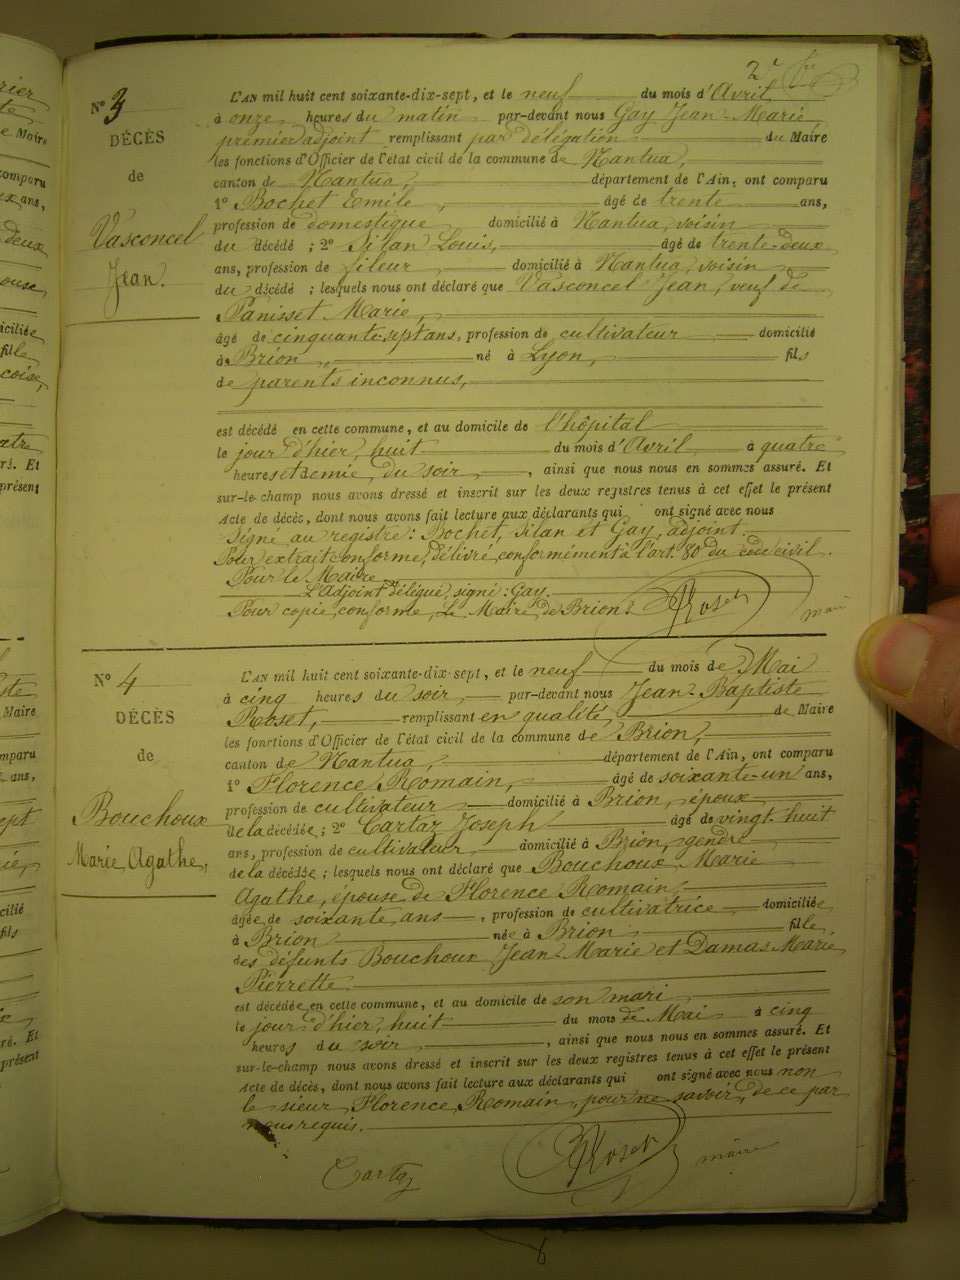 2e
N° 3
DÉCÈS
de
Vasconcel
Jean.
L'AN mil huit cent soixante-dix-sept, et le neuf du mois d'Avril
à onze heures du matin par-devant nous Gay Jean-Marie
premier adjoint remplissant par délégation du Maire
les fonctions d'Officier de l'état civil de la commune de Nantua,
canton de Nantua, département de l'Ain, ont comparu
1° Bochet Emile, âgé de trente ans,
profession de domestique domicilié à Nantua, voisin
du décédé ; 2° Silan Louis, âgé de trente-deux
ans, profession de fileur domicilié à Nantua, voisin
du décédé ; lesquels nous ont déclaré que Vasconcel Jean, veuf de
Panisset Marie,
âgé de cinquante-sept ans, profession de cultivateur domicilié
à Brion, né à Lyon, fils
de parents inconnus,
est décédé en cette commune, et au domicile de l'hôpital
le jour d'hier, huit du mois d'Avril à quatre
heures et demie du soir, ainsi que nous nous en sommes assuré. Et
sur-le-champ nous avons dressé et inscrit sur les deux registres tenus à cet effet le présent
acte de décès, dont nous avons fait lecture aux déclarants qui ont signé avec nous
Signé au registre : Bochet, Silan et Gay, adjoint.
Pour extrait conforme, délivré conformément à l'art. 80 du code civil.
Pour le Maire
L'Adjoint délégué, signé : Gay.
Pour copie conforme, Le Maire de Brion : Roset maire
N° 4
DÉCÈS
de
Bouchoux
Marie Agathe,
L'AN mil huit cent soixante-dix-sept, et le neuf du mois de Mai
à cinq heures du soir, par-devant nous Jean-Baptiste
Roset, remplissant en qualité de Maire
les fonctions d'Officier de l'état civil de la commune de Brion,
canton de Nantua, département de l'Ain, ont comparu
1° Florence Romain, âgé de soixante-un ans,
profession de cultivateur domicilié à Brion, époux
de la décédée ; 2° Cartaz Joseph âgé de vingt-huit
ans, profession de cultivateur domicilié à Brion, gendre
de la décédée ; lesquels nous ont déclaré que Bouchoux Marie
Agathe, épouse de Florence Romain,
âgée de soixante ans, profession de cultivatrice domiciliée
à Brion née à Brion fille
des défunts Bouchoux Jean-Marie et Damas Marie
Pierrette.
est décédée en cette commune, et au domicile de son mari
le jour d'hier, huit du mois de Mai à cinq
heures du soir, ainsi que nous nous en sommes assuré. Et
sur-le-champ nous avons dressé et inscrit sur les deux registres tenus à cet effet le présent
acte de décès, dont nous avons fait lecture aux déclarants qui ont signé avec nous non
le sieur Florence Romain, pour ne savoir, de ce par
nous requis.
Cartaz Roset maire